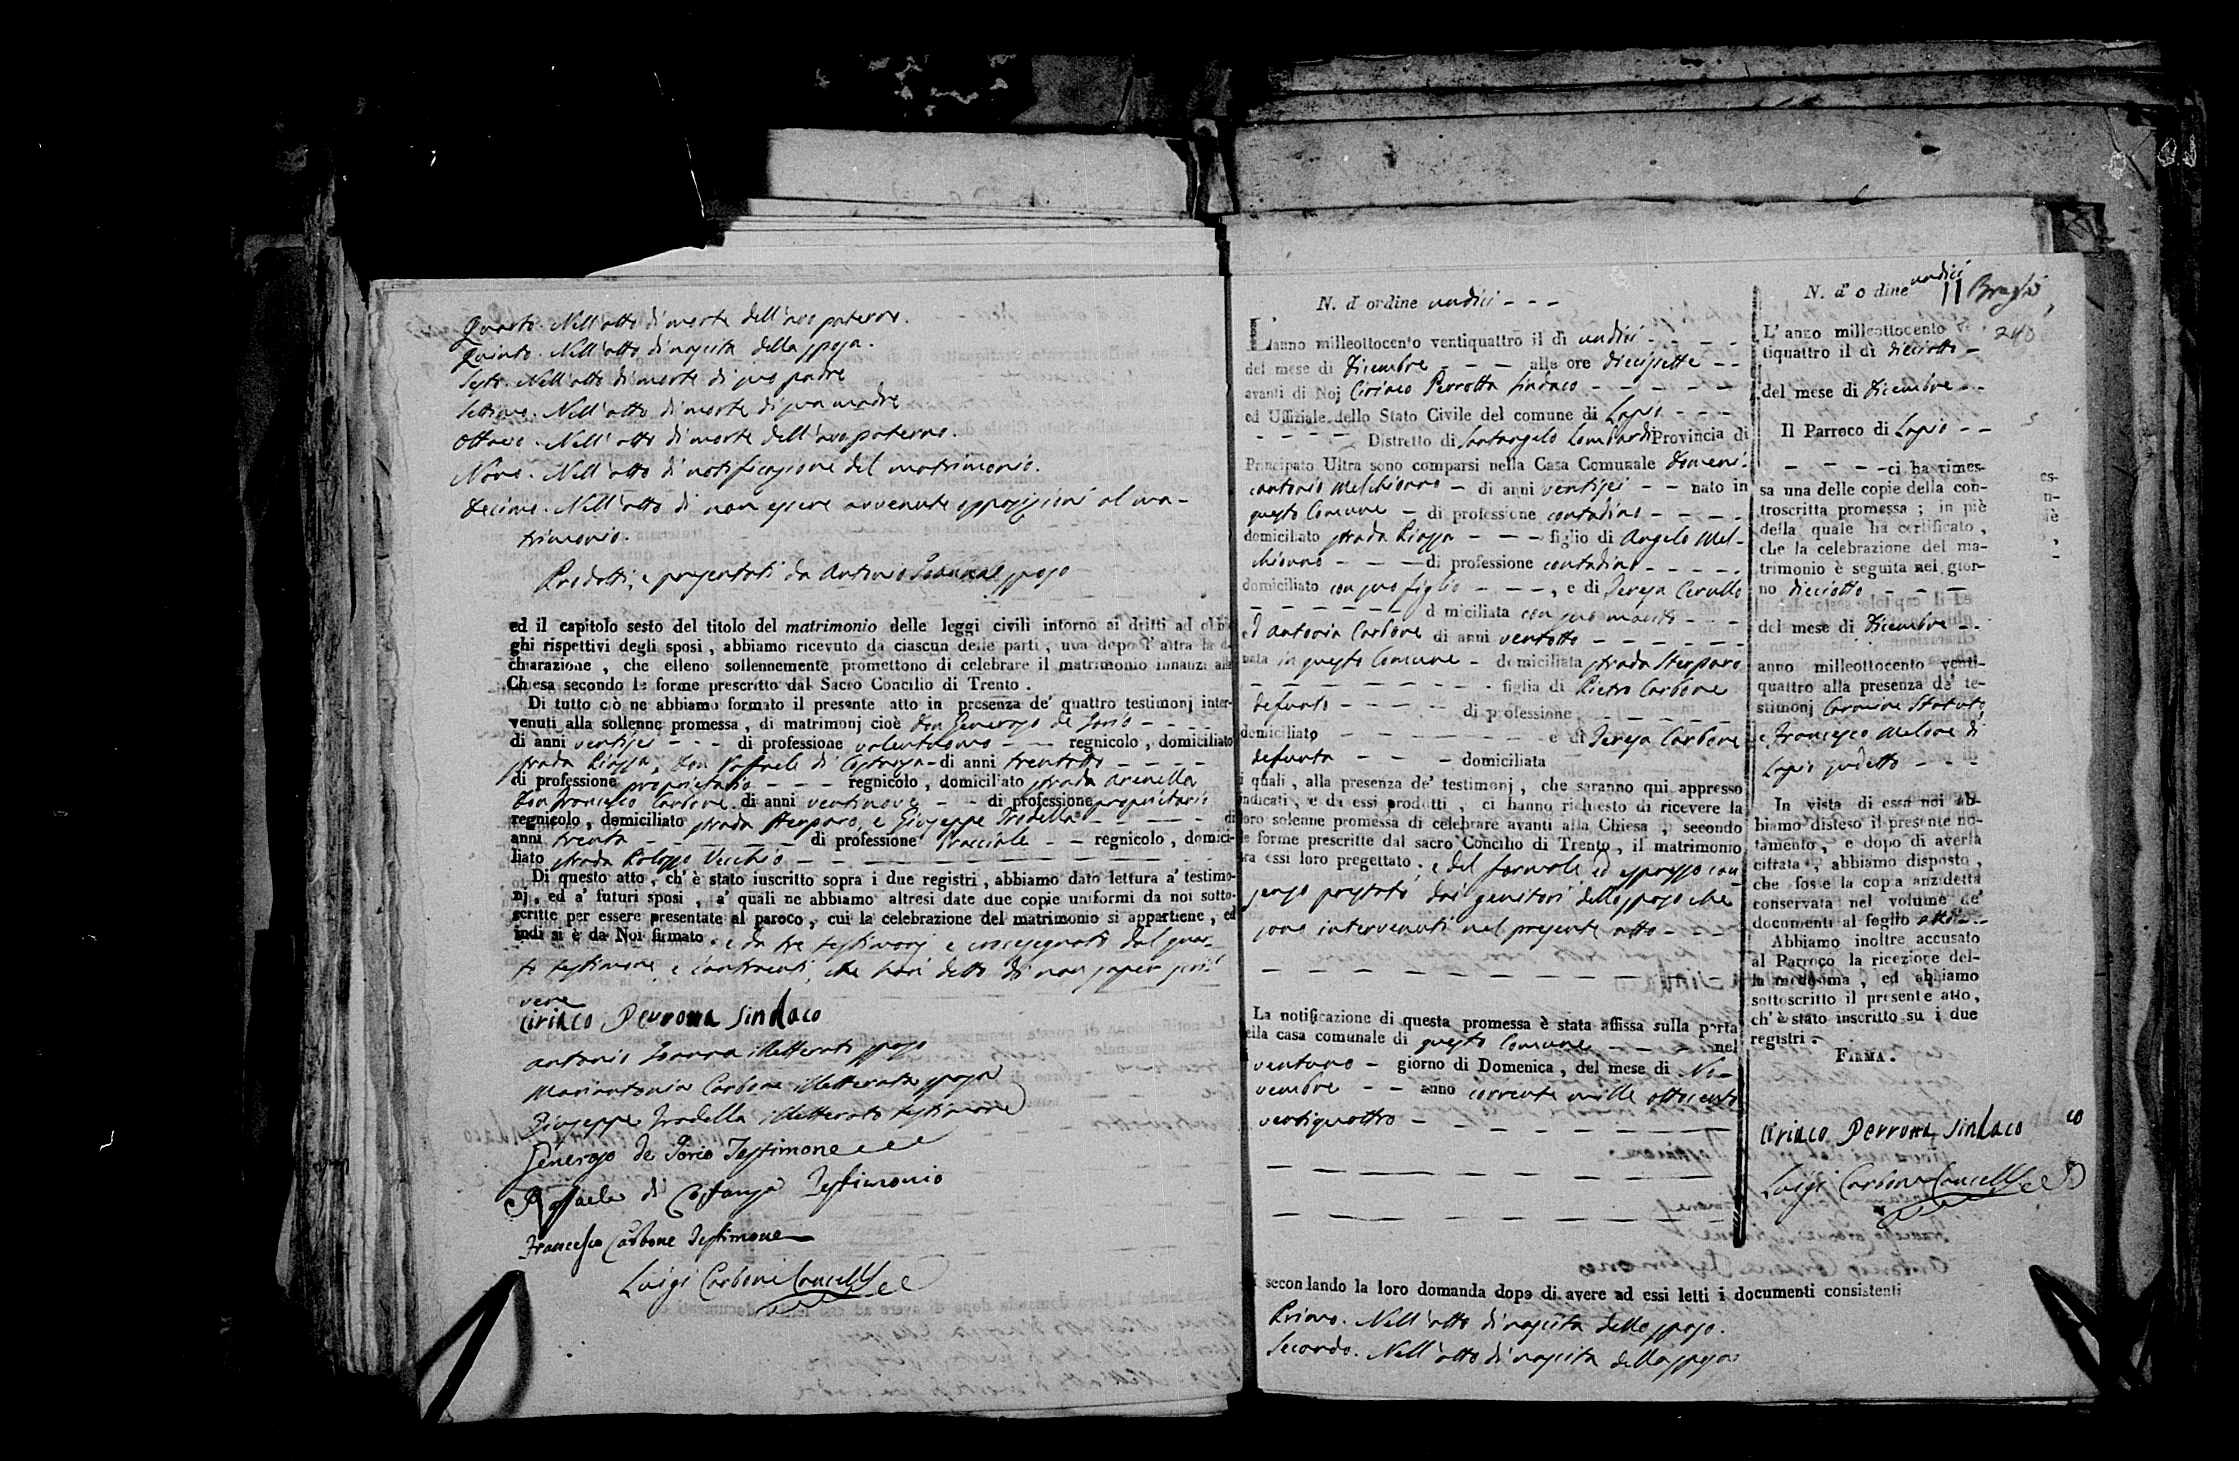 Quarto. Nell'atto di morte dell'avo paterno.
Quinto. Nell'atto di nascita della sposa.
Sesto. Nell'atto di morte di suo padre
Settimo. Nell'atto di morte di sua madre
Ottavo. Nell'atto di morte dell'avo paterno.
Nono. Nell'atto di notificazione del matrimonio.
Decimo. Nell'atto di non essere avvenute opposizioni al ma-
trimonio.
Prodotti, e presentati da Antonio Ioanna sposo
ed il capitolo sesto del titolo del matrimonio delle leggi civili intorno ai dritti ad obbli
ghi rispettivi degli sposi, abbiamo ricevuto da ciascun delle parti, una dopo l'altra la di
chiarazione, che elleno sollennemente promettono di celebrare il matrimonio innanzi alla
Chiesa secondo le forme prescritto dal Sacro Concilio di Trento.
Di tutto ciò ne abbiamo formato il presente atto in presenza de' quattro testimonj inter-
venuti alla sollenne promessa, di matrimonj cioè Don Generoso de Iorio - - -
di anni ventisei - - - di professione valentuomo - - regnicolo, domiciliato
strada Piazza, Don Raffaele di Costanza - di anni trentotto - - - -
di professione proprietario - - - regnicolo, domiciliato strada Arenella
Don Francesco Carbone di anni ventinove - - di professione proprietario
regnicolo, domiciliato strada Sterparo, e Giuseppe Iradella - - - - di
anni trenta - - - - - di professione bracciale - - regnicolo, domici-
liato strada Palazzo Vecchio - - - - - - -
Di questo atto, ch'è stato inscritto sopra i due registri, abbiamo dato lettura a' testimo-
nj, ed a' futuri sposi, a' quali ne abbiamo altresì date due copie uniformi da noi sotto-
scritte per essere presentate al paroco, cui la celebrazione del matrimonio si appartiene, ed
indi si è da Noi firmato. e da tre testimonj e crocesegnato dal quar-
to testimone e contraenti, che han detto di non saper scri
vere
Ciriaco Perrotta Sindaco
Antonio Ioanna illetterato sposo
Mariantonia Carbone illetterata sposa
Giuseppe Iradella illetterato testimone
Generoso de Iorio Testimone
Raffaele di Costanza Testimonio
Francesco Carbone Testimone
Luigi Carbone Cancell.
N. d'ordine undici - - -
L'anno milleottocento ventiquattro il dì undici - - - -
del mese di Dicembre - - - alle ore diecisette - -
avanti di Noj Ciriaco Perrotta Sindaco - - - - -
ed Uffiziale dello Stato Civile del comune di Lapio - - -
- - - - Distretto di Santangelo Lombardi Provincia di
Principato Ultra sono comparsi nella Casa Comunale Domeni-
cantonio Melchionno - di anni ventisei - - nato in
questo Comune - di professione contadino - - - -
domiciliato strada Piazza - - - figlio di Angelo Mel-
chionno - - - di professione contadino - - - - -
domiciliato con suo figlio - - -, e di Teresa Cerullo
- - - - - - domiciliata con suo marito - - -
ed Antonia Carbone di anni ventotto - - - - -
nata in questo Comune - domiciliata strada Sterparo
- - - - - - - figlia di Pietro Carbone
defunto - - - - di professione - - - - -
domiciliato - - - - - - e di Teresa Carbone
defunta - - - domiciliata
i quali, alla presenza de' testimonj, che saranno qui appresso
indicati, e da essi prodotti, ci hanno richiesto di ricevere la
loro solenne promessa di celebrare avanti alla Chiesa, secondo
le forme prescritte dal sacro Concilio di Trento, il matrimonio
tra essi loro pregettato; e del formale ed espresso con-
senso prestato dai genitori dello sposo che
sono intervenuti nel presente atto - - -
La notificazione di questa promessa è stata affissa sulla porta
della casa comunale di questo Comune - - - nel
venturo - giorno di Domenica, del mese di No-
vembre - - anno corrente mille ottocento
ventiquattro - - - - - - -
secondando la loro domanda dopo di avere ad essi letti i documenti consistenti
Primo. Nell'atto di nascita dello sposo.
Secondo. Nell'atto di nascita della sposa
N. d'o dine undici
11
240
L'anno milleottocento ven
tiquattro il dì dieciotto -
del mese di Dicembre - -
Il Parroco di Lapio - -
- - - - ci ha rimes-
sa una delle copie della con-
troscritta promessa; in piè
della quale ha certificato,
che la celebrazione del ma-
trimonio è seguita nel gior-
no dieciotto - - -
del mese di Dicembre - -
anno milleottocento venti-
quattro alla presenza de' te-
stimonj Carmine Statuto
e Francesco Melone di
Lapio sudetto - - -
In vista di essa noi ab-
biamo disteso il presente no-
tamento, e dopo di averla
cifrata, abbiamo disposto,
che fosse la copia anzidetta
conservata nel volume de'
documenti al foglio otto - -
Abbiamo inoltre accusato
al Parroco la ricezione del-
la medesima, ed abbiamo
sottoscritto il presente atto,
ch'è stato inscritto su i due
registri.
FIRMA.
Ciriaco Perrotta Sindaco
Luigi Carbone Cancell.